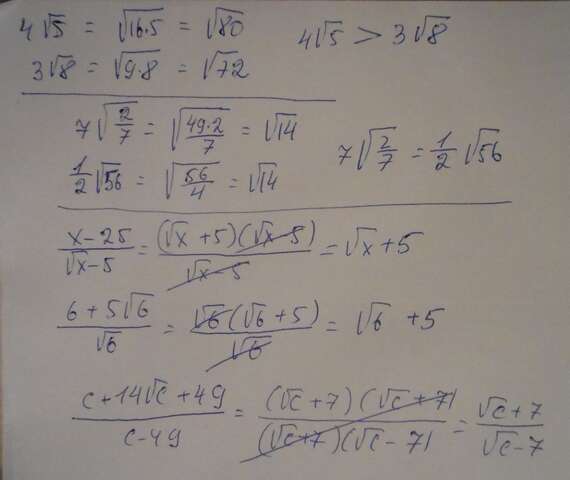 4√5 = √(16·5) = √80
3√8 = √(9·8) = √72
4√5 > 3√8
7√(2/7) = √(49·2/7) = √14
1/2√56 = √(56/4) = √14
7√(2/7) = 1/2√56
(x-25)/(√x-5) = (√x+5)(√x-5)/(√x-5) = √x+5
(6+5√6)/√6 = √6(√6+5)/√6 = √6 +5
(c+14√c+49)/(c-49) = (√c+7)(√c+7)/(√c+7)(√c-7) = (√c+7)/(√c-7)